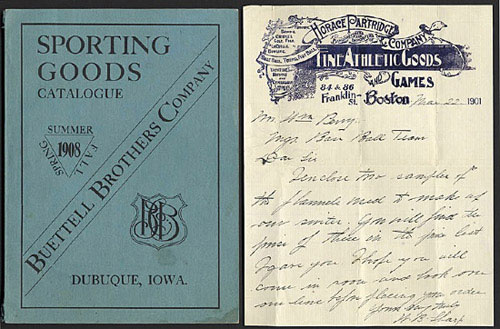 SPORTING
GOODS
CATALOGUE
SPRING SUMMER FALL
1908
BUETTELL BROTHERS COMPANY
BBCo
DUBUQUE, IOWA.
HORACE PARTRIDGE
COMPANY
FINE ATHLETIC GOODS
AND
GAMES
84 & 86
Franklin St. Boston Mar 22 1901
Mr. Wm Berry,
Mgr. Base Ball Team
Dear Sir
I enclose two samples of
the flannels used to make up
our suits. You will find the
price of these in the price list
I gave you. I hope you will
come in soon and look over
our line before placing your order
Yours truly